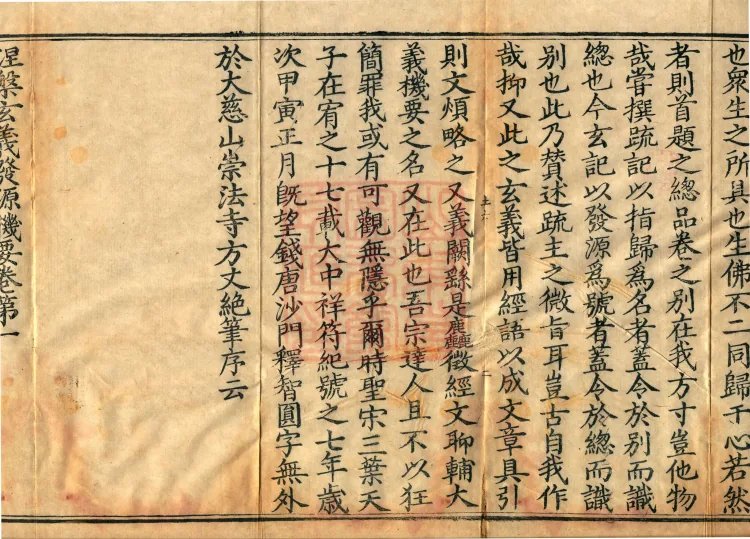 也衆生之所具也生佛不二同歸于心若然
者則首題之緫品卷之别在我方寸豈他物
哉甞撰疏記以指歸為名者蓋令於别而識
緫也今玄記以發源為號者蓋令於緫而識
别也此乃賛述疏主之微旨耳豈古自我作
哉抑又此之玄義皆用經語以成文章具引
則文煩略之又義闕繇是麤徵經文聊輔大
義機要之名又在此也吾宗達人且不以狂
簡罪我或有可觀無隱乎爾時聖宋三葉天
子在宥之十七載大中祥符紀號之七年歲
次甲寅正月既望錢唐沙門釋智圓字無外
於大慈山崇法寺方丈絶筆序云
涅槃玄義發源機要卷第一